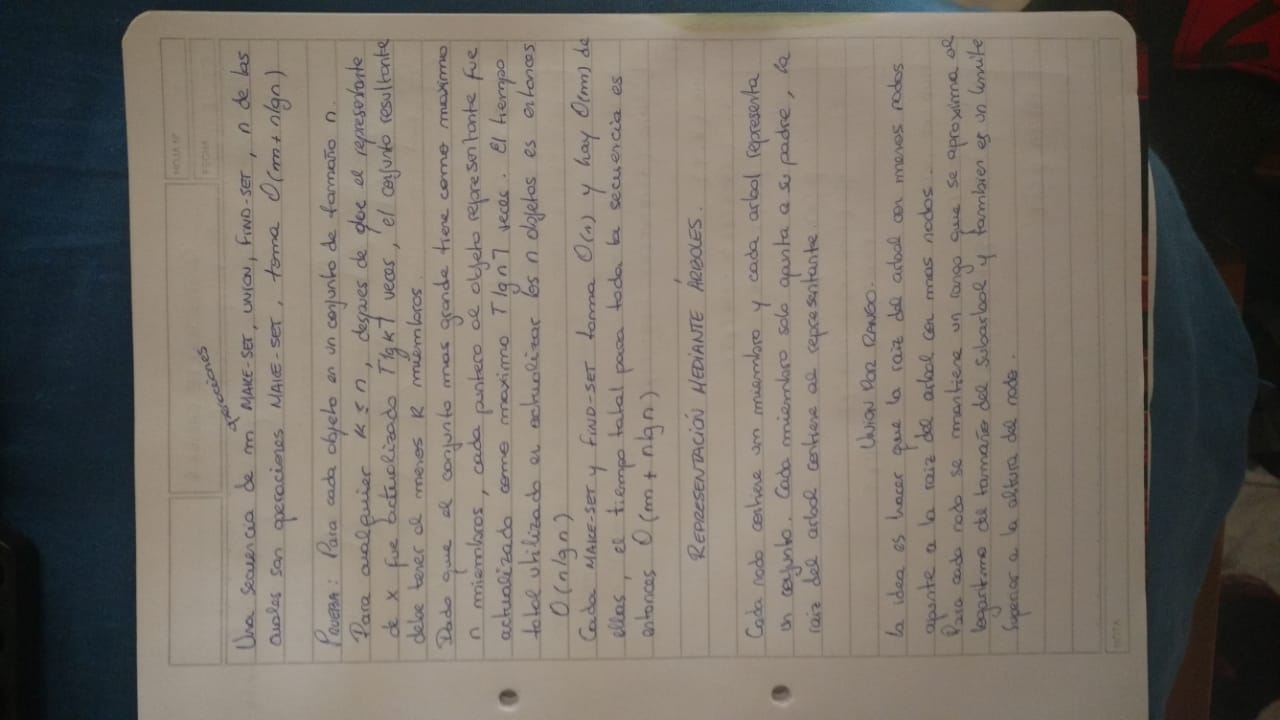 HOJA Nº
FECHA
operaciones
Una secuencia de m MAKE-SET, UNION, FIND-SET, n de las
cuales son operaciones MAKE-SET, toma O(m + nlgn)
PRUEBA: Para cada objeto en un conjunto de tamaño n.
Para cualquier K ≤ n, despues de que el representante
de x fue actualizado ⌈lg K⌉ veces, el conjunto resultante
debe tener al menos K miembros.
Dado que el conjunto mas grande tiene como maximo
n miembros, cada puntero al objeto representante fue
actualizado como maximo ⌈lg n⌉ veces. El tiempo
total utilizado en actualizar los n objetos es entonces
O(nlgn)
Cada MAKE-SET y FIND-SET toma O(1) y hay O(m) de
ellas, el tiempo total para toda la secuencia es
entonces O(m + nlgn)
REPRESENTACIÓN MEDIANTE ÁRBOLES.
Cada nodo contiene un miembro y cada arbol representa
un conjunto. Cada miembro solo apunta a su padre, la
raiz del arbol contiene al representante.
UNION POR RANGO.
La idea es hacer que la raiz del arbol con menos nodos
apunte a la raiz del arbol con mas nodos.
Para cada nodo se mantiene un rango que se aproxima al
logaritmo del tamaño del subarbol y tambien es un limite
superior a la altura del nodo.
NOTA